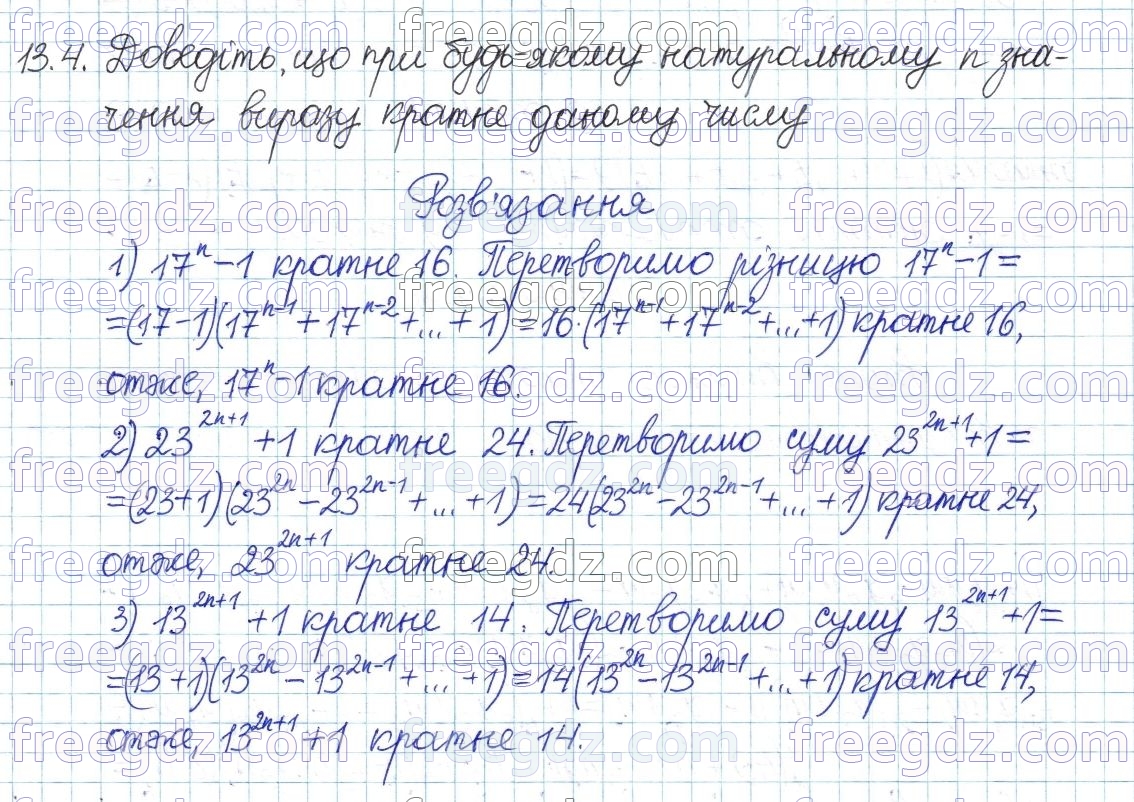 13.4. Доведіть, що при будь-якому натуральному n зна-
чення виразу кратне даному числу
Розв'язання
1) 17^n - 1 кратне 16. Перетворимо різницю 17^n - 1 =
= (17 - 1)(17^{n-1} + 17^{n-2} + ... + 1) = 16 · (17^{n-1} + 17^{n-2} + ... + 1) кратне 16,
отже, 17^n - 1 кратне 16.
2) 23^{2n+1} + 1 кратне 24. Перетворимо суму 23^{2n+1} + 1 =
= (23 + 1)(23^{2n} - 23^{2n-1} + ... + 1) = 24(23^{2n} - 23^{2n-1} + ... + 1) кратне 24,
отже, 23^{2n+1} кратне 24.
3) 13^{2n+1} + 1 кратне 14. Перетворимо суму 13^{2n+1} + 1 =
= (13 + 1)(13^{2n} - 13^{2n-1} + ... + 1) = 14(13^{2n} - 13^{2n-1} + ... + 1) кратне 14,
отже, 13^{2n+1} + 1 кратне 14.
freegdz.com